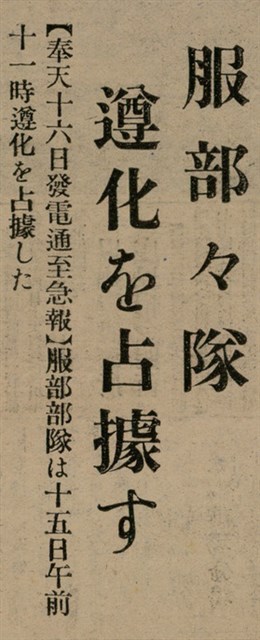 服部々隊
遵化を占據す
【奉天十六日發電通至急報】服部部隊は十五日午前
十一時遵化を占據した